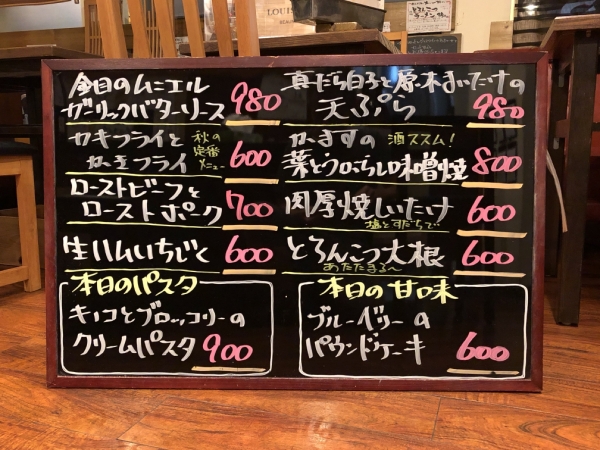 今日のムニエル
ガーリックバターソース 980
カキフライと
かきフライ 600
秋の
定番
メニュー
ローストビーフと
ローストポーク 700
生ハムいちじく 600
本日のパスタ
キノコとブロッコリーの
クリームパスタ 900
真だら白子と原木まいたけの
天ぷら 980
かますの 酒ススム!
葉とうがらし味噌焼 800
肉厚焼しいたけ 600
塩とすだちで
とろんこつ大根 600
あたたまる〜
本日の甘味
ブルーベリーの
パウンドケーキ 600
LOUIS